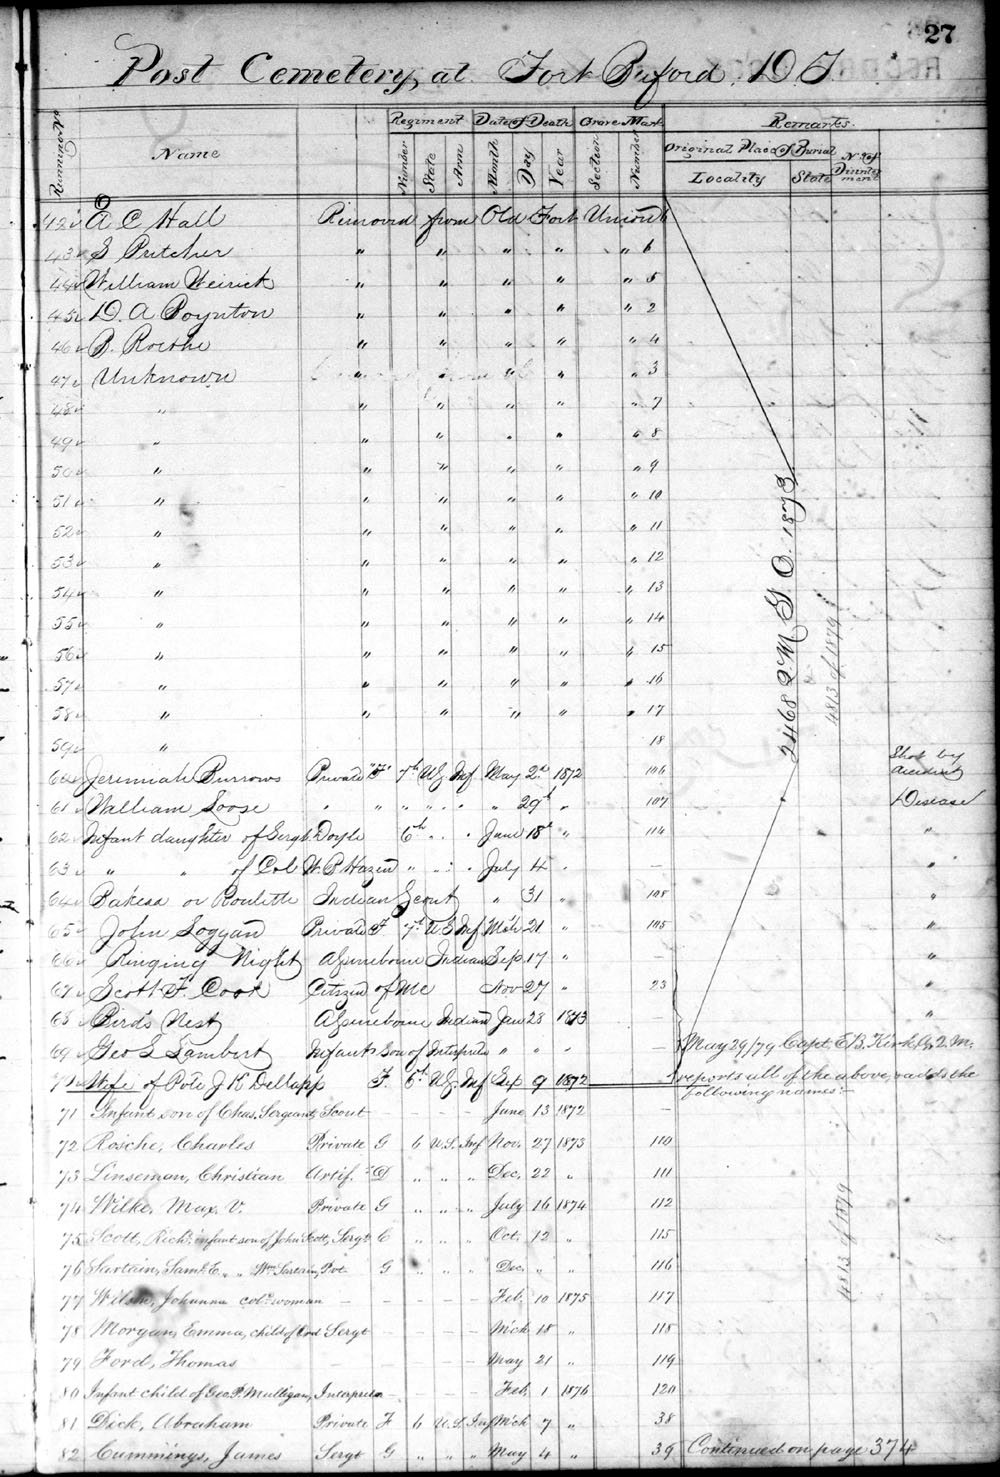 27
Post Cemetery, at Fort Buford D.T.
Running No. Name Regiment Date of Death Grave Mark Remarks.
Number State Arm Month Day Year Section Number Original Place of Burial No. of Disinterment
Locality State
42 A C Hall Removed from Old Fort Union 1
43 S Pritcher " " " " " 6
44 William Weirick " " " " " 5
45 D. A Poynton " " " " " 2
46 B. Roethe " " " " " 4
47 Unknown " " " " " 3
48 " " " " " " 7
49 " " " " " " 8
50 " " " " " " 9
51 " " " " " " 10
52 " " " " " " 11
53 " " " " " " 12
54 " " " " " " 13
55 " " " " " " 14
56 " " " " " " 15
57 " " " " " " 16
58 " " " " " " 17
59 " 18
2468 Q M G O. 1873.
4813 of 1879
60 Jeremiah Burrows Private "F" 7th U.S. Inf May 2d 1872 106 Shot by accident
61 William Loose " " " " " " 29th " 107 Disease
62 Infant daughter of Sergt. Doyle 6th " " June 18th " 114 "
63 " " of Col W. B Hazen " " " July 4 " — "
64 Pakesa or Roulette Indian Scout " 31 " 108 "
65 John Logyan Private F 7th U S Inf Mch 21 " 105 "
66 Ringing Night Assineboine Indian Sep. 17 " — "
67 Scott F. Cook Citizen of Me Nov 27 " 23 "
68 Birds Nest Assineboine Indian Jan 28 1873 — "
69 Geo S Lambert Infant Son of Interpreter " " " — May 29/79 Capt. E. B. Kirk, A, Q. M.
70 Wife of Pvte J K Dellapp F. 6th U.S. Inf Sep 9 1872 reports all of the above, & adds the
following names:—
71 Infant son of Chas, Sergeant, Scout — — — June 13 1872 —
72 Rosche, Charles Private G 6 U.S. Inf Nov. 27 1873 110
73 Linseman, Christian Artif. D " " " Dec. 22 " 111
74 Wilke, Max. V. Private G " " " July 16 1874 112
4813 of 1879
75 Scott, Richd. infant son of John Scott, Sergt C " " " Oct. 12 " 115
76 Sartain, Saml. E. " " Wm Sartain, Pvt G " " " Dec. " " 116
77 Wilson, Johanna cold. woman — — — — — Feb. 10 1875 117
78 Morgan, Emma, child of Ord Sergt — — — — Mch 18 " 118
79 Ford, Thomas — — — — May 21 " 119
80 Infant child of Geo. P. Mulligan, Interpreter — — — — Feb. 1 1876 120
81 Dick, Abraham Private F 6 U.S. Inf Mch 7 " 38
82 Cummings, James Sergt G " " " May 4 " 39 Continued on page 374